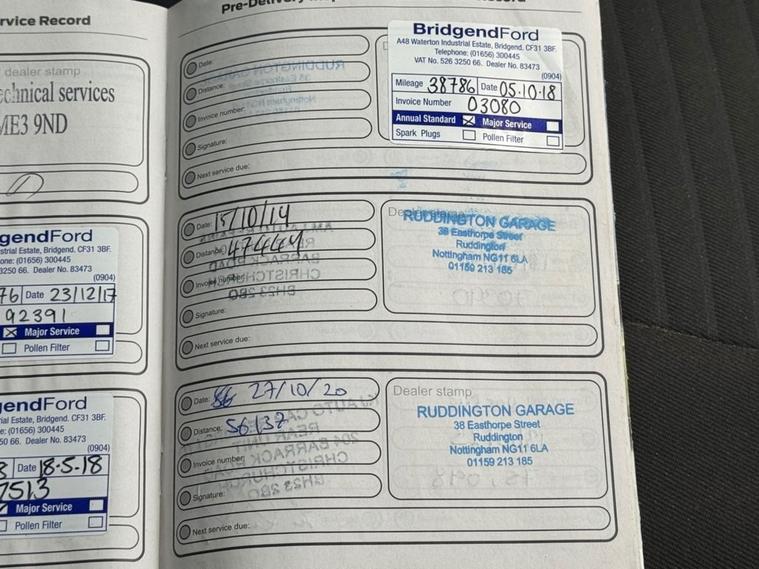 rvice Record
dealer stamp
echnical services
ME3 9ND
gendFord
strial Estate, Bridgend. CF31 3BF.
one: (01656) 300445
3250 66. Dealer No. 83473
(0904)
76 Date 23/12/17
92391
Major Service
Pollen Filter
endFord
ial Estate, Bridgend. CF31 3BF.
e: (01656) 300445
50 66. Dealer No. 83473
(0904)
Date 18-5-18
7513
Major Service
Pollen Filter
Date:
Distance:
Invoice number:
Signature:
Next service due:
BridgendFord
A48 Waterton Industrial Estate, Bridgend. CF31 3BF.
Telephone: (01656) 300445
VAT No. 526 3250 66. Dealer No. 83473
(0904)
Mileage 38786 Date 05.10.18
Invoice Number 03080
Annual Standard Major Service
Spark Plugs Pollen Filter
Date: 15/10/19
Distance: 47444
Signature:
Next service due:
RUDDINGTON GARAGE
38 Easthorpe Street
Ruddington
Nottingham NG11 6LA
01159 213 185
Date: 27/10/20
Distance: 56137
Invoice number:
Signature:
Next service due:
Dealer stamp
RUDDINGTON GARAGE
38 Easthorpe Street
Ruddington
Nottingham NG11 6LA
01159 213 185